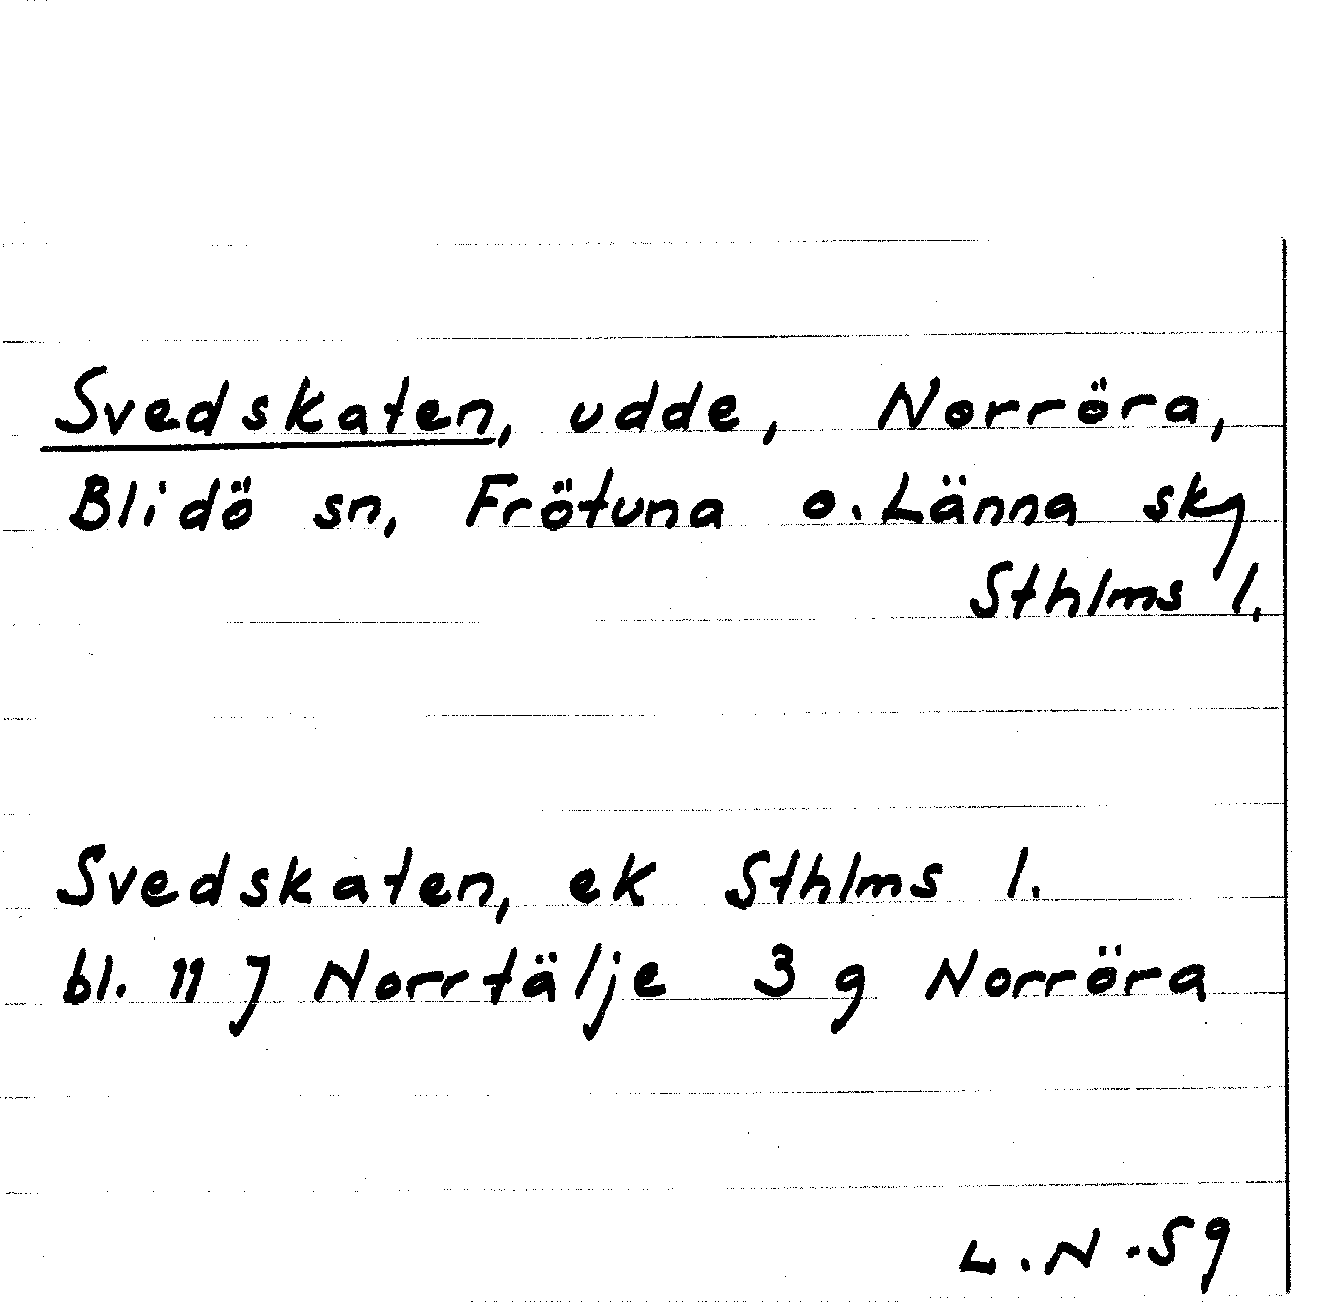 Svedskaten, udde, Norröra,
Blidö sn, Frötuna o. Länna skg
Sthlms l.
Svedskaten, ek Sthlms l.
bl. 11 J Norrtälje 3 g Norröra
L.N.-59